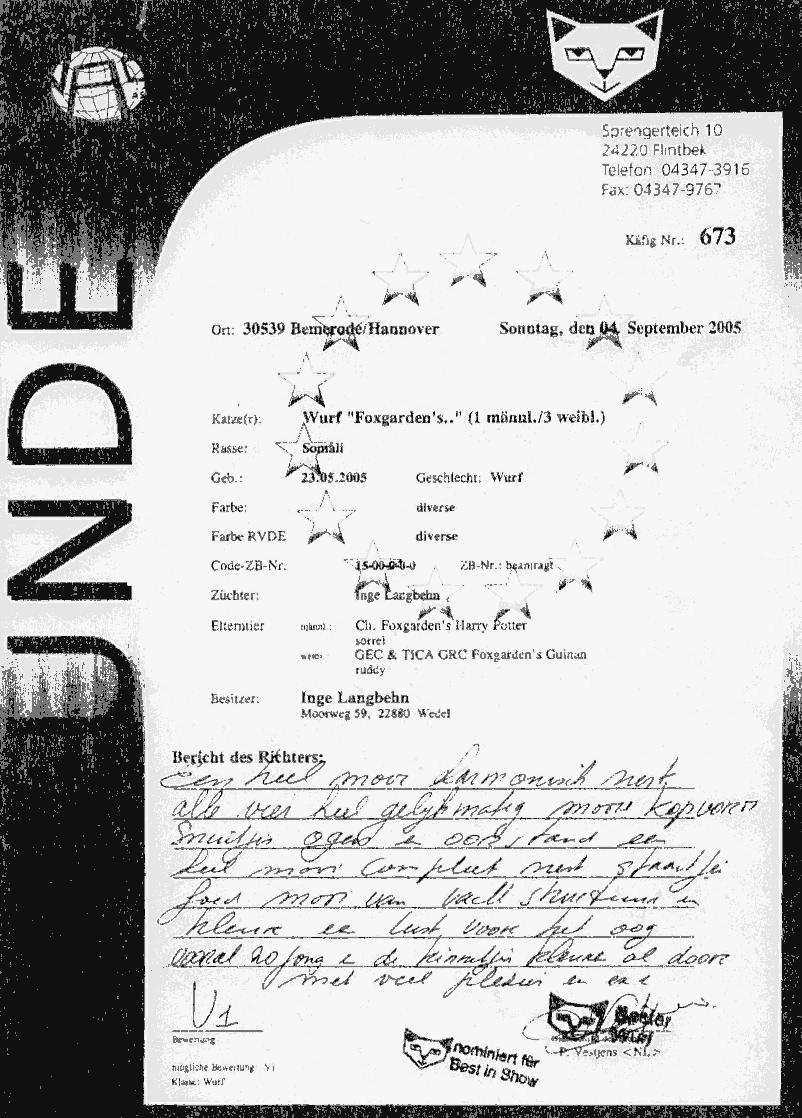 UNDE
Sprengerteich 10
24220 Flintbek
Telefon: 04347-3916
Fax: 04347-9767
Käfig Nr.: 673
Ort: 30539 Bemerode/Hannover Sonntag, den 04. September 2005
Katze(r): Wurf "Foxgarden's.." (1 männl./3 weibl.)
Rasse: Somali
Geb.: 23.05.2005 Geschlecht: Wurf
Farbe: diverse
Farbe RVDE diverse
Code-ZB-Nr. 15-00-0-0-0 ZB-Nr.: beantragt
Züchter: Inge Langbehn
Elterntier männl.: Ch. Foxgarden's Harry Potter
sorrel
weibl.: GEC & TICA GRC Foxgarden's Guinan
ruddy
Besitzer: Inge Langbehn
Moorweg 59, 22880 Wedel
Bericht des Richters:
Een heel mooi harmonisch nest
alle vier heel gelijkmatig mooie kopvoren
Snuitjes ogen en oorstand een
heel mooi compleet nest staartje
goed mooi van vacht structuur en
kleur een lust voor het oog
vooral zo jong en de kleur al door
met veel plezier en
V1
Bewertung
mögliche Bewertung: V1
Klasse: Wurf
nominiert für
Best in Show
Bester
Wurf
P. Vestjens <NL>